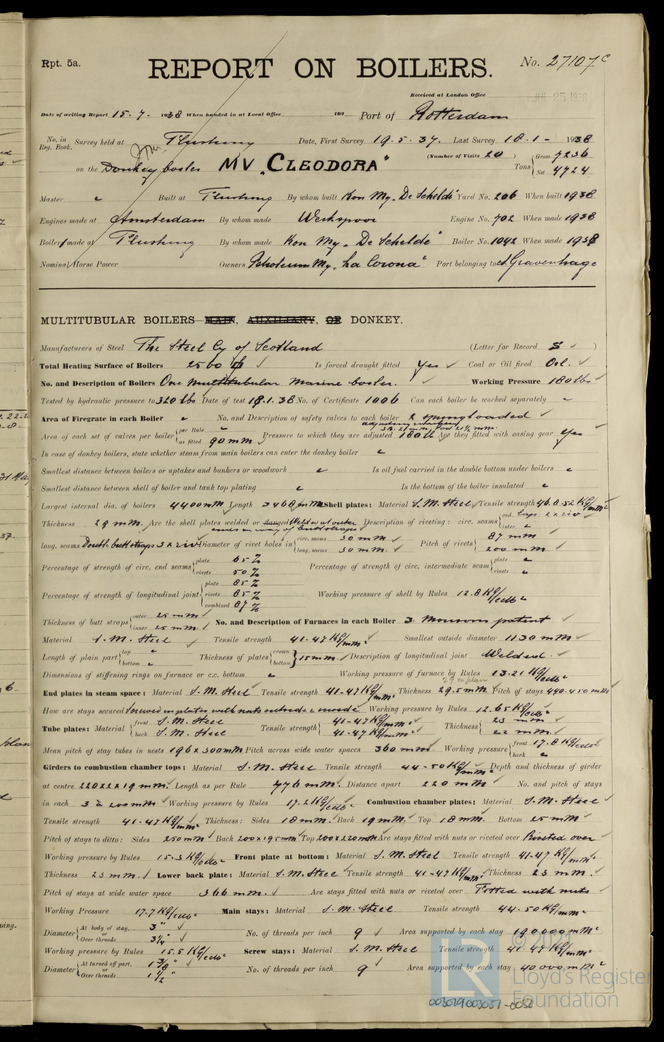 Rpt. 5a.
REPORT ON BOILERS.
No. 27107c
Received at London Office
Date of writing Report 15.7.1938 When handed in at Local Office 193 Port of Rotterdam
No. in Reg. Book. Survey held at Flushing Date, First Survey 19.5.37. Last Survey 18.1- 1938
on the Donkey boiler MV „CLEODORA" (Number of Visits 20) Tons Gross 7236 Net 4724
Master Built at Flushing By whom built Kon My. De Schelde" Yard No. 206 When built 1938
Engines made at Amsterdam By whom made Werkspoor Engine No. 702 When made 1938
Boiler made at Flushing By whom made Kon My. „De Schelde" Boiler No. 1042 When made 1938
Nominal Horse Power Owners Petroleum My. „La Corona" Port belonging to 's Gravenhage
MULTITUBULAR BOILERS—MAIN, AUXILIARY, OR DONKEY.
Manufacturers of Steel The Steel Cy of Scotland (Letter for Record S)
Total Heating Surface of Boilers 2560 Is forced draught fitted Yes Coal or Oil fired Oil.
No. and Description of Boilers One multitubular marine boiler. Working Pressure 180 lbs
Tested by hydraulic pressure to 320 lbs Date of test 18.1.38 No. of Certificate 1006 Can each boiler be worked separately
Area of Firegrate in each Boiler No. and Description of safety valves to each boiler 2 spring loaded
Area of each set of valves per boiler per Rule as fitted 90 mm Pressure to which they are adjusted Are they fitted with easing gear Yes
In case of donkey boilers, state whether steam from main boilers can enter the donkey boiler
Smallest distance between boilers or uptakes and bunkers or woodwork Is oil fuel carried in the double bottom under boilers
Smallest distance between shell of boiler and tank top plating Is the bottom of the boiler insulated
Largest internal dia. of boilers 4400 mm Length 3468 mm Shell plates: Material S.M. Steel Tensile strength 46.8-52 KG/mm²
Thickness 29 mm. Are the shell plates welded or flanged Description of riveting: circ. seams end Laps 2 x riv inter.
long. seams Double buttstraps 3 x riv Diameter of rivet holes in circ. seams 30 mm long. seams 30 mm Pitch of rivets 87 mm 200 mm
Percentage of strength of circ. end seams plate 65% rivets 50% Percentage of strength of circ. intermediate seam plate rivets
Percentage of strength of longitudinal joint plate 85% rivets 85% combined 87% Working pressure of shell by Rules 12.8 KG/cm²
Thickness of butt straps outer 25 mm inner 25 mm No. and Description of Furnaces in each Boiler 3 Morison patent
Material S.M. Steel Tensile strength 41-47 KG/mm² Smallest outside diameter 1130 mm
Length of plain part top bottom Thickness of plates crown bottom 15 mm Description of longitudinal joint Welded.
Dimensions of stiffening rings on furnace or c.c. bottom Working pressure of furnace by Rules 13.21 KG/cm²
End plates in steam space: Material S.M. Steel Tensile strength 41-47 KG/mm² Thickness 29.5 mm Pitch of stays 440.450 mm
How are stays secured Screwed in plates with nuts outside & inside Working pressure by Rules 12.65 KG/cm²
Tube plates: Material front S.M. Steel back S.M. Steel Tensile strength 41-47 KG/mm² 41-47 KG/mm² Thickness 23 mm 22 mm
Mean pitch of stay tubes in nests 196 x 300 mm Pitch across wide water spaces 360 mm Working pressure front 17.8 KG/cm² back
Girders to combustion chamber tops: Material S.M. Steel Tensile strength 44-50 KG/mm² Depth and thickness of girder
at centre 220x2x19 mm. Length as per Rule 776 mm. Distance apart 220 mm No. and pitch of stays
in each 3 à 200 mm Working pressure by Rules 17.2 KG/cm² Combustion chamber plates: Material S.M. Steel
Tensile strength 41-47 KG/mm² Thickness: Sides 18 mm Back 19 mm Top 18 mm Bottom 25 mm
Pitch of stays to ditto: Sides 250 mm Back 200x195 mm Top 200x220 mm Are stays fitted with nuts or riveted over Riveted over
Working pressure by Rules 15.3 KG/cm² Front plate at bottom: Material S.M. Steel Tensile strength 41-47 KG/mm²
Thickness 23 mm. Lower back plate: Material S.M. Steel Tensile strength 41-47 KG/mm² Thickness 23 mm
Pitch of stays at wide water space 366 mm. Are stays fitted with nuts or riveted over Fitted with nuts
Working Pressure 17.7 KG/cm² Main stays: Material S.M. Steel Tensile strength 44-50 KG/mm²
Diameter At body of stay, 3" or Over threads 3¼" No. of threads per inch 9 Area supported by each stay 190000 mm²
Working pressure by Rules 15.5 KG/cm² Screw stays: Material S.M. Steel Tensile strength 41-47 KG/mm²
Diameter At turned off part, 1⅜" or Over threads 1½" No. of threads per inch 9 Area supported by each stay 40000 mm²
LR Lloyd's Register Foundation
003029003037-0052